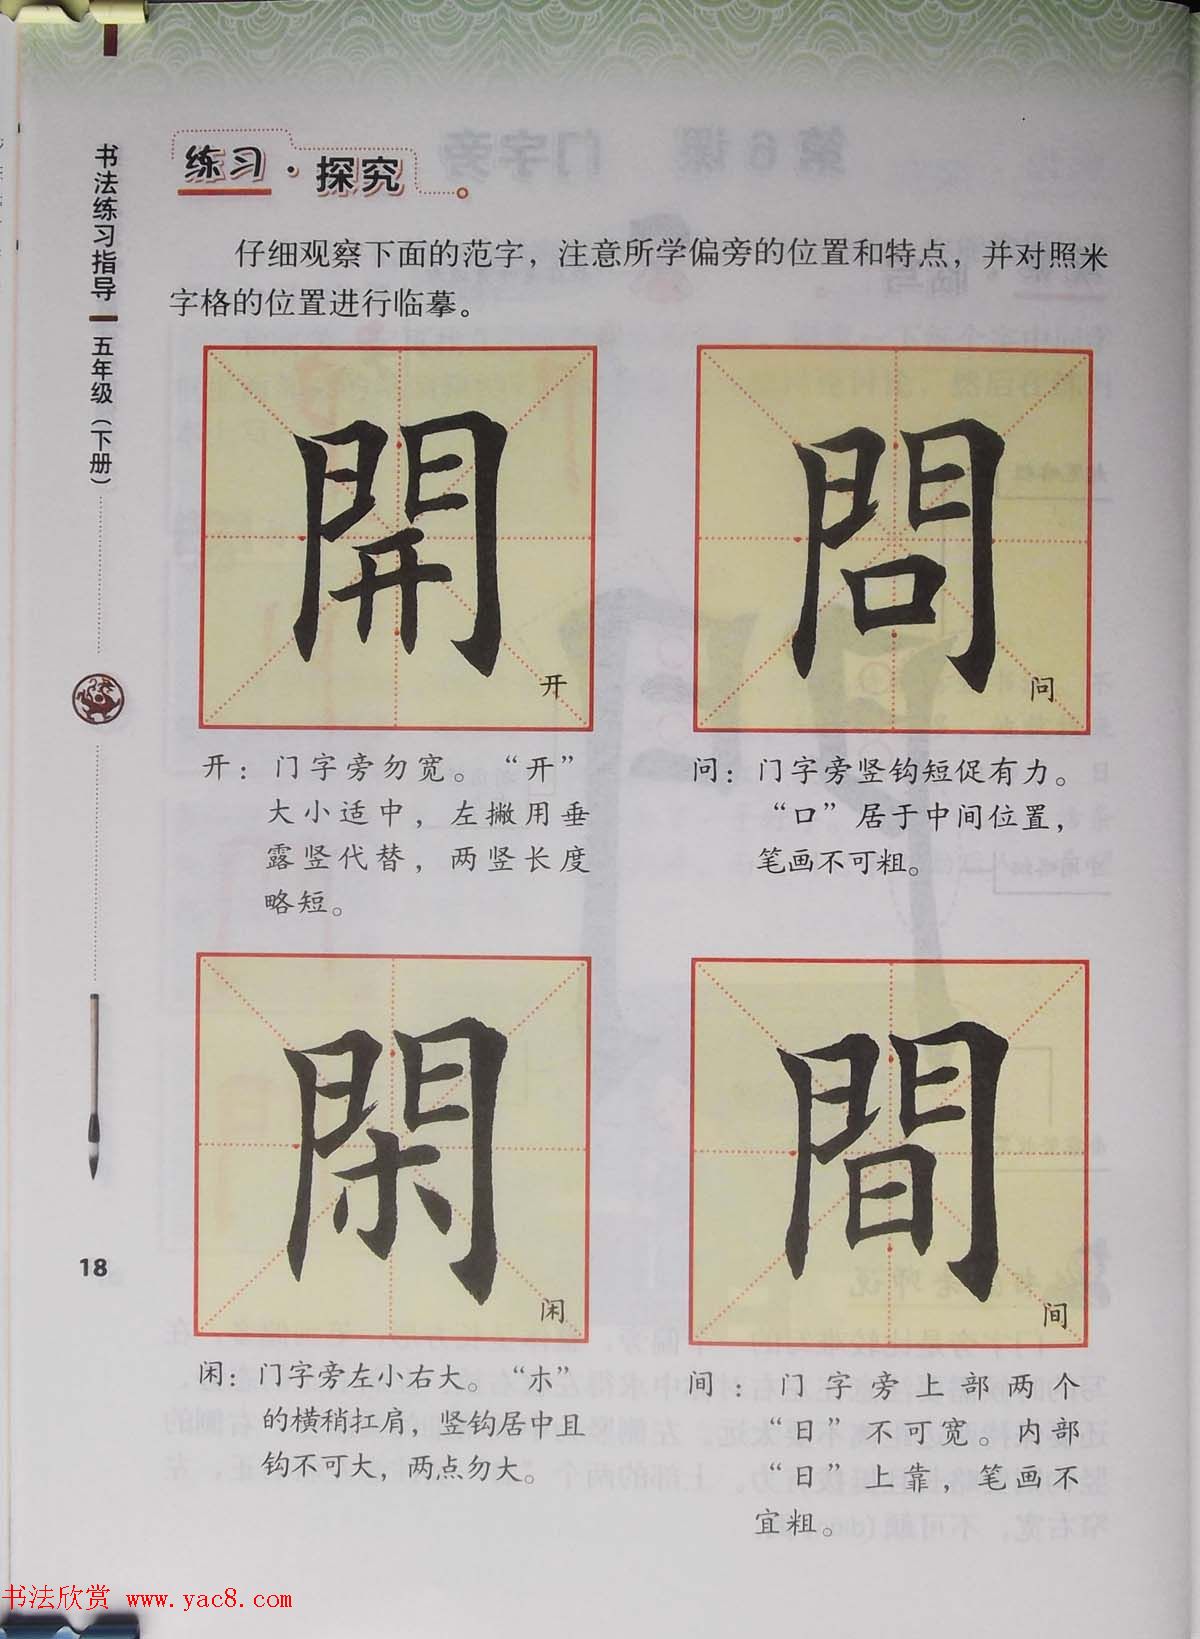 书法练习指导
五年级（下册）
18
练习·探究
仔细观察下面的范字，注意所学偏旁的位置和特点，并对照米
字格的位置进行临摹。
開
开
問
问
开：门字旁勿宽。“开”
大小适中，左撇用垂
露竖代替，两竖长度
略短。
问：门字旁竖钩短促有力。
“口”居于中间位置，
笔画不可粗。
閑
闲
間
间
闲：门字旁左小右大。“木”
的横稍扛肩，竖钩居中且
钩不可大，两点勿大。
间：门字旁上部两个
“日”不可宽。内部
“日”上靠，笔画不
宜粗。
书法欣赏 www.yac8.com